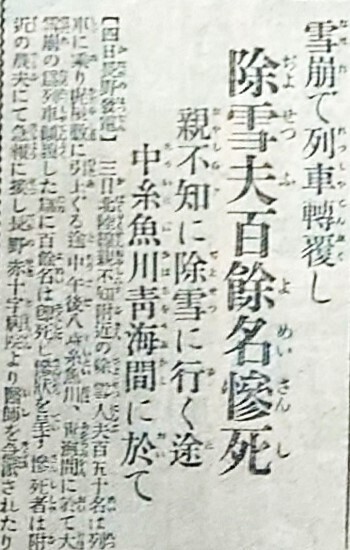 雪崩で列車轉覆し
除雪夫百餘名慘死
親不知に除雪に行く途
中糸魚川靑海間に於て
【四日長野發電】三日北陸線親不知附近の除雪人夫百五十名は列
車に乘り引上ぐる途中午後八時糸魚川、靑海間に於て大
雪崩の爲列車顚覆した爲に百餘名は卽死し慘狀を呈す慘死者は附
近の農夫にて急報に接し長野赤十字病院より醫師を急派されたり